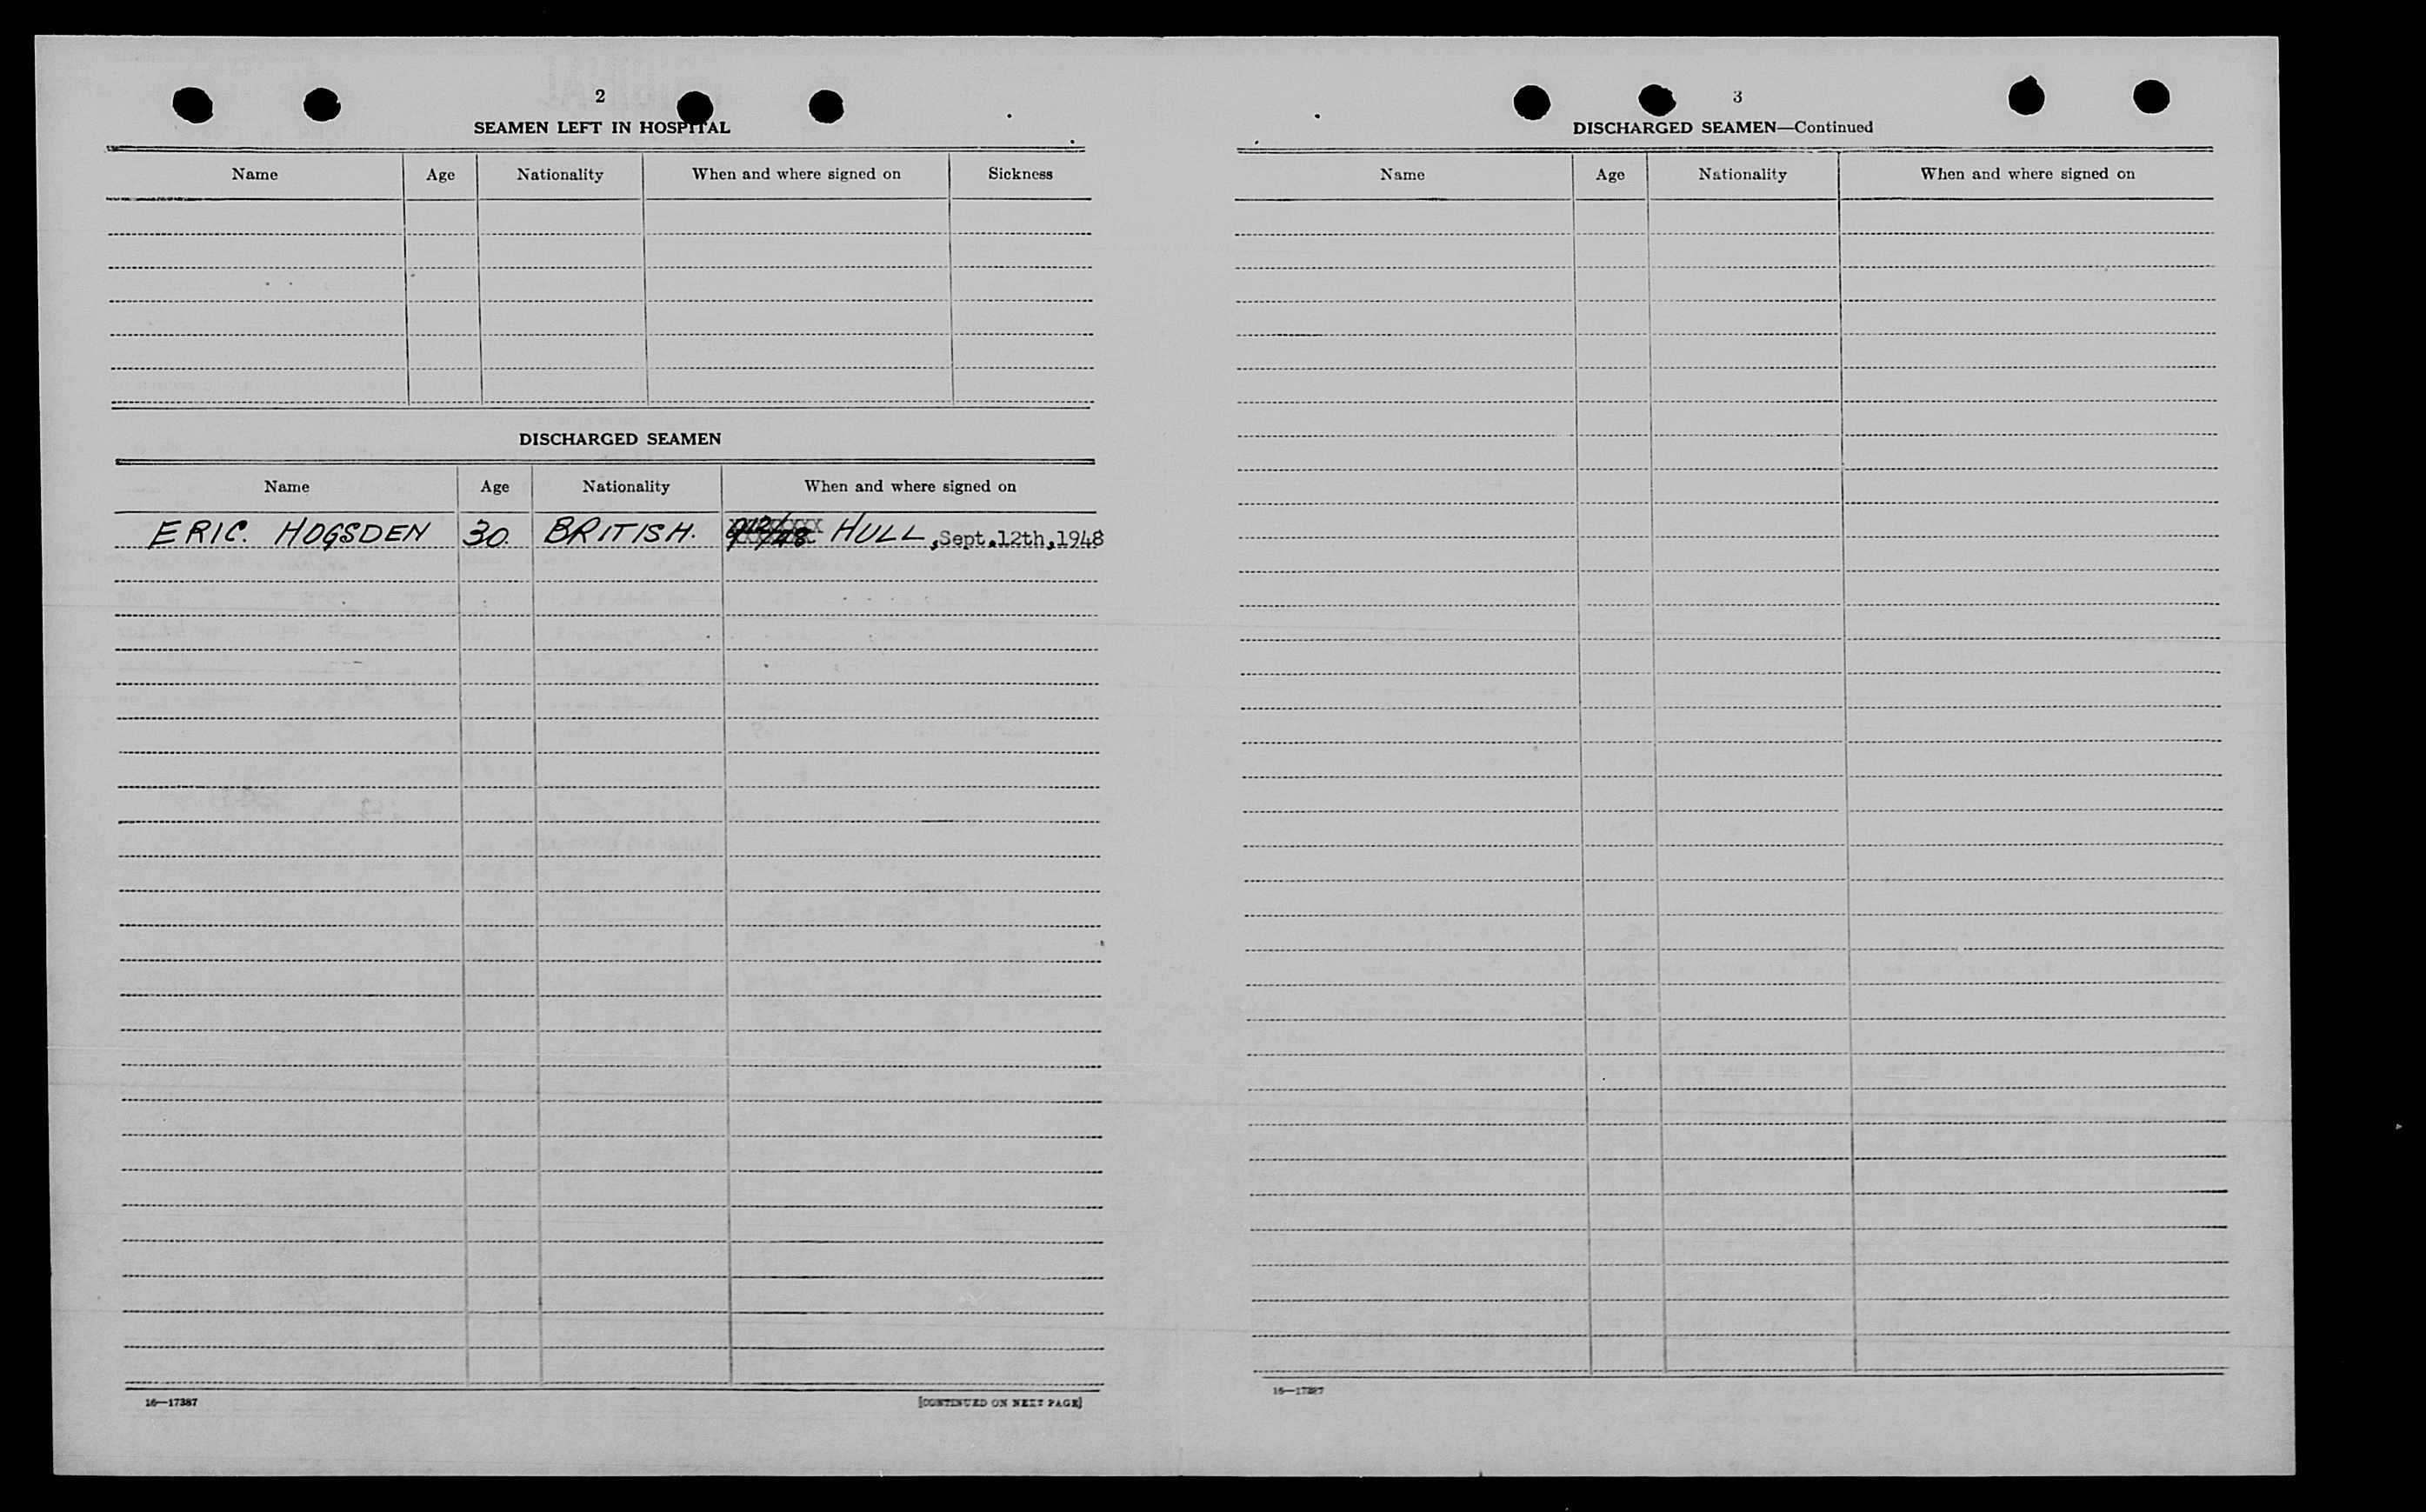 2
SEAMEN LEFT IN HOSPITAL
Name Age Nationality When and where signed on Sickness
DISCHARGED SEAMEN
Name Age Nationality When and where signed on
ERIC. HOGSDEN 30. BRITISH. HULL, Sept.12th,1948
16—17387
[CONTINUED ON NEXT PAGE]
3
DISCHARGED SEAMEN—Continued
Name Age Nationality When and where signed on
16—17387